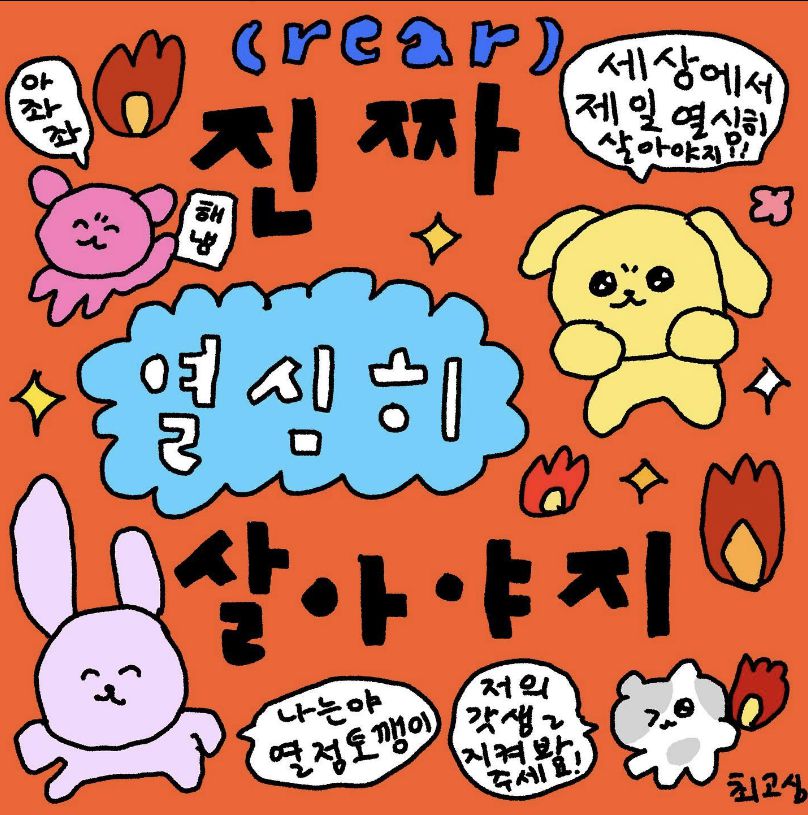 (rear)
진짜
아
좌
좌
세상에서
제일 열심히
살아야지!!
해
냄
열심히
살아야지
나는야
열정토깽이
저의
각샘을
지켜봐
주세요!
최고심